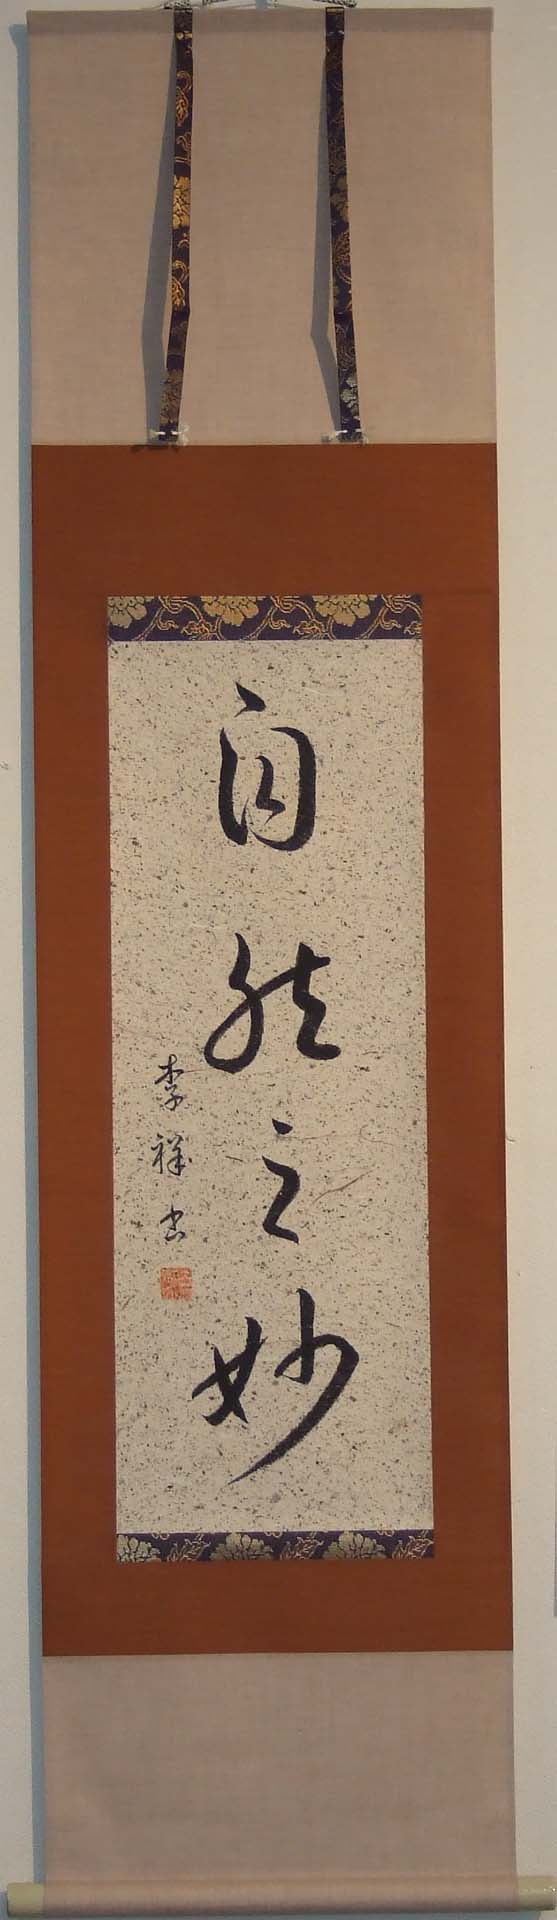 自然之妙
李祥書